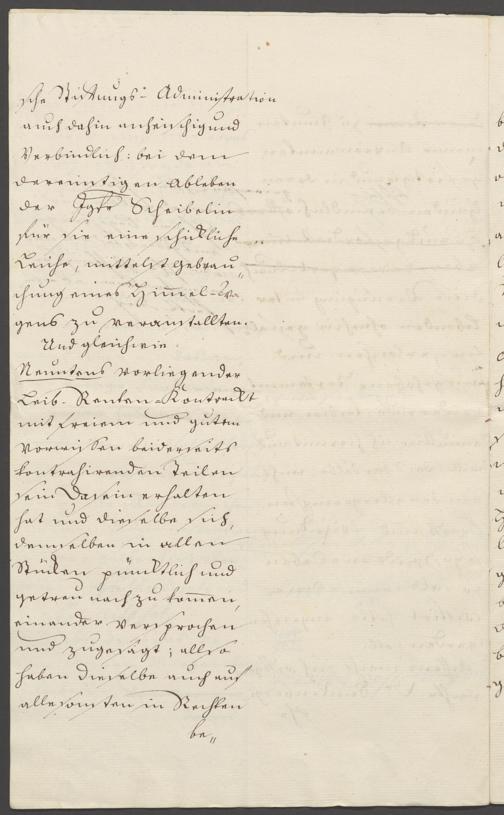 sche Stiftungs-Administration
auch dahin anheischig und
Verbindlich: bei dem
dereinstigen Ableben
der Jgfr Scheibelin
für sie eine schickliche
Leiche, mittelst Gebrau„
chung eines Himmel-Wa„
gens zu veranstallten.
Und gleichwie
Neuntens vorliegender
Leib-Renten-Kontrackt
mit freiem und gutem
Vorwissen beiderseits
kontrahirenden Teilen
sein Dasein erhalten
hat und dieselbe sich,
demselben in allen
Stücken pünktlich und
getreu nach zu kommen,
einander versprochen
und zugesagt; allso
haben dieselbe auch auf
alle sonsten in Rechten
be„